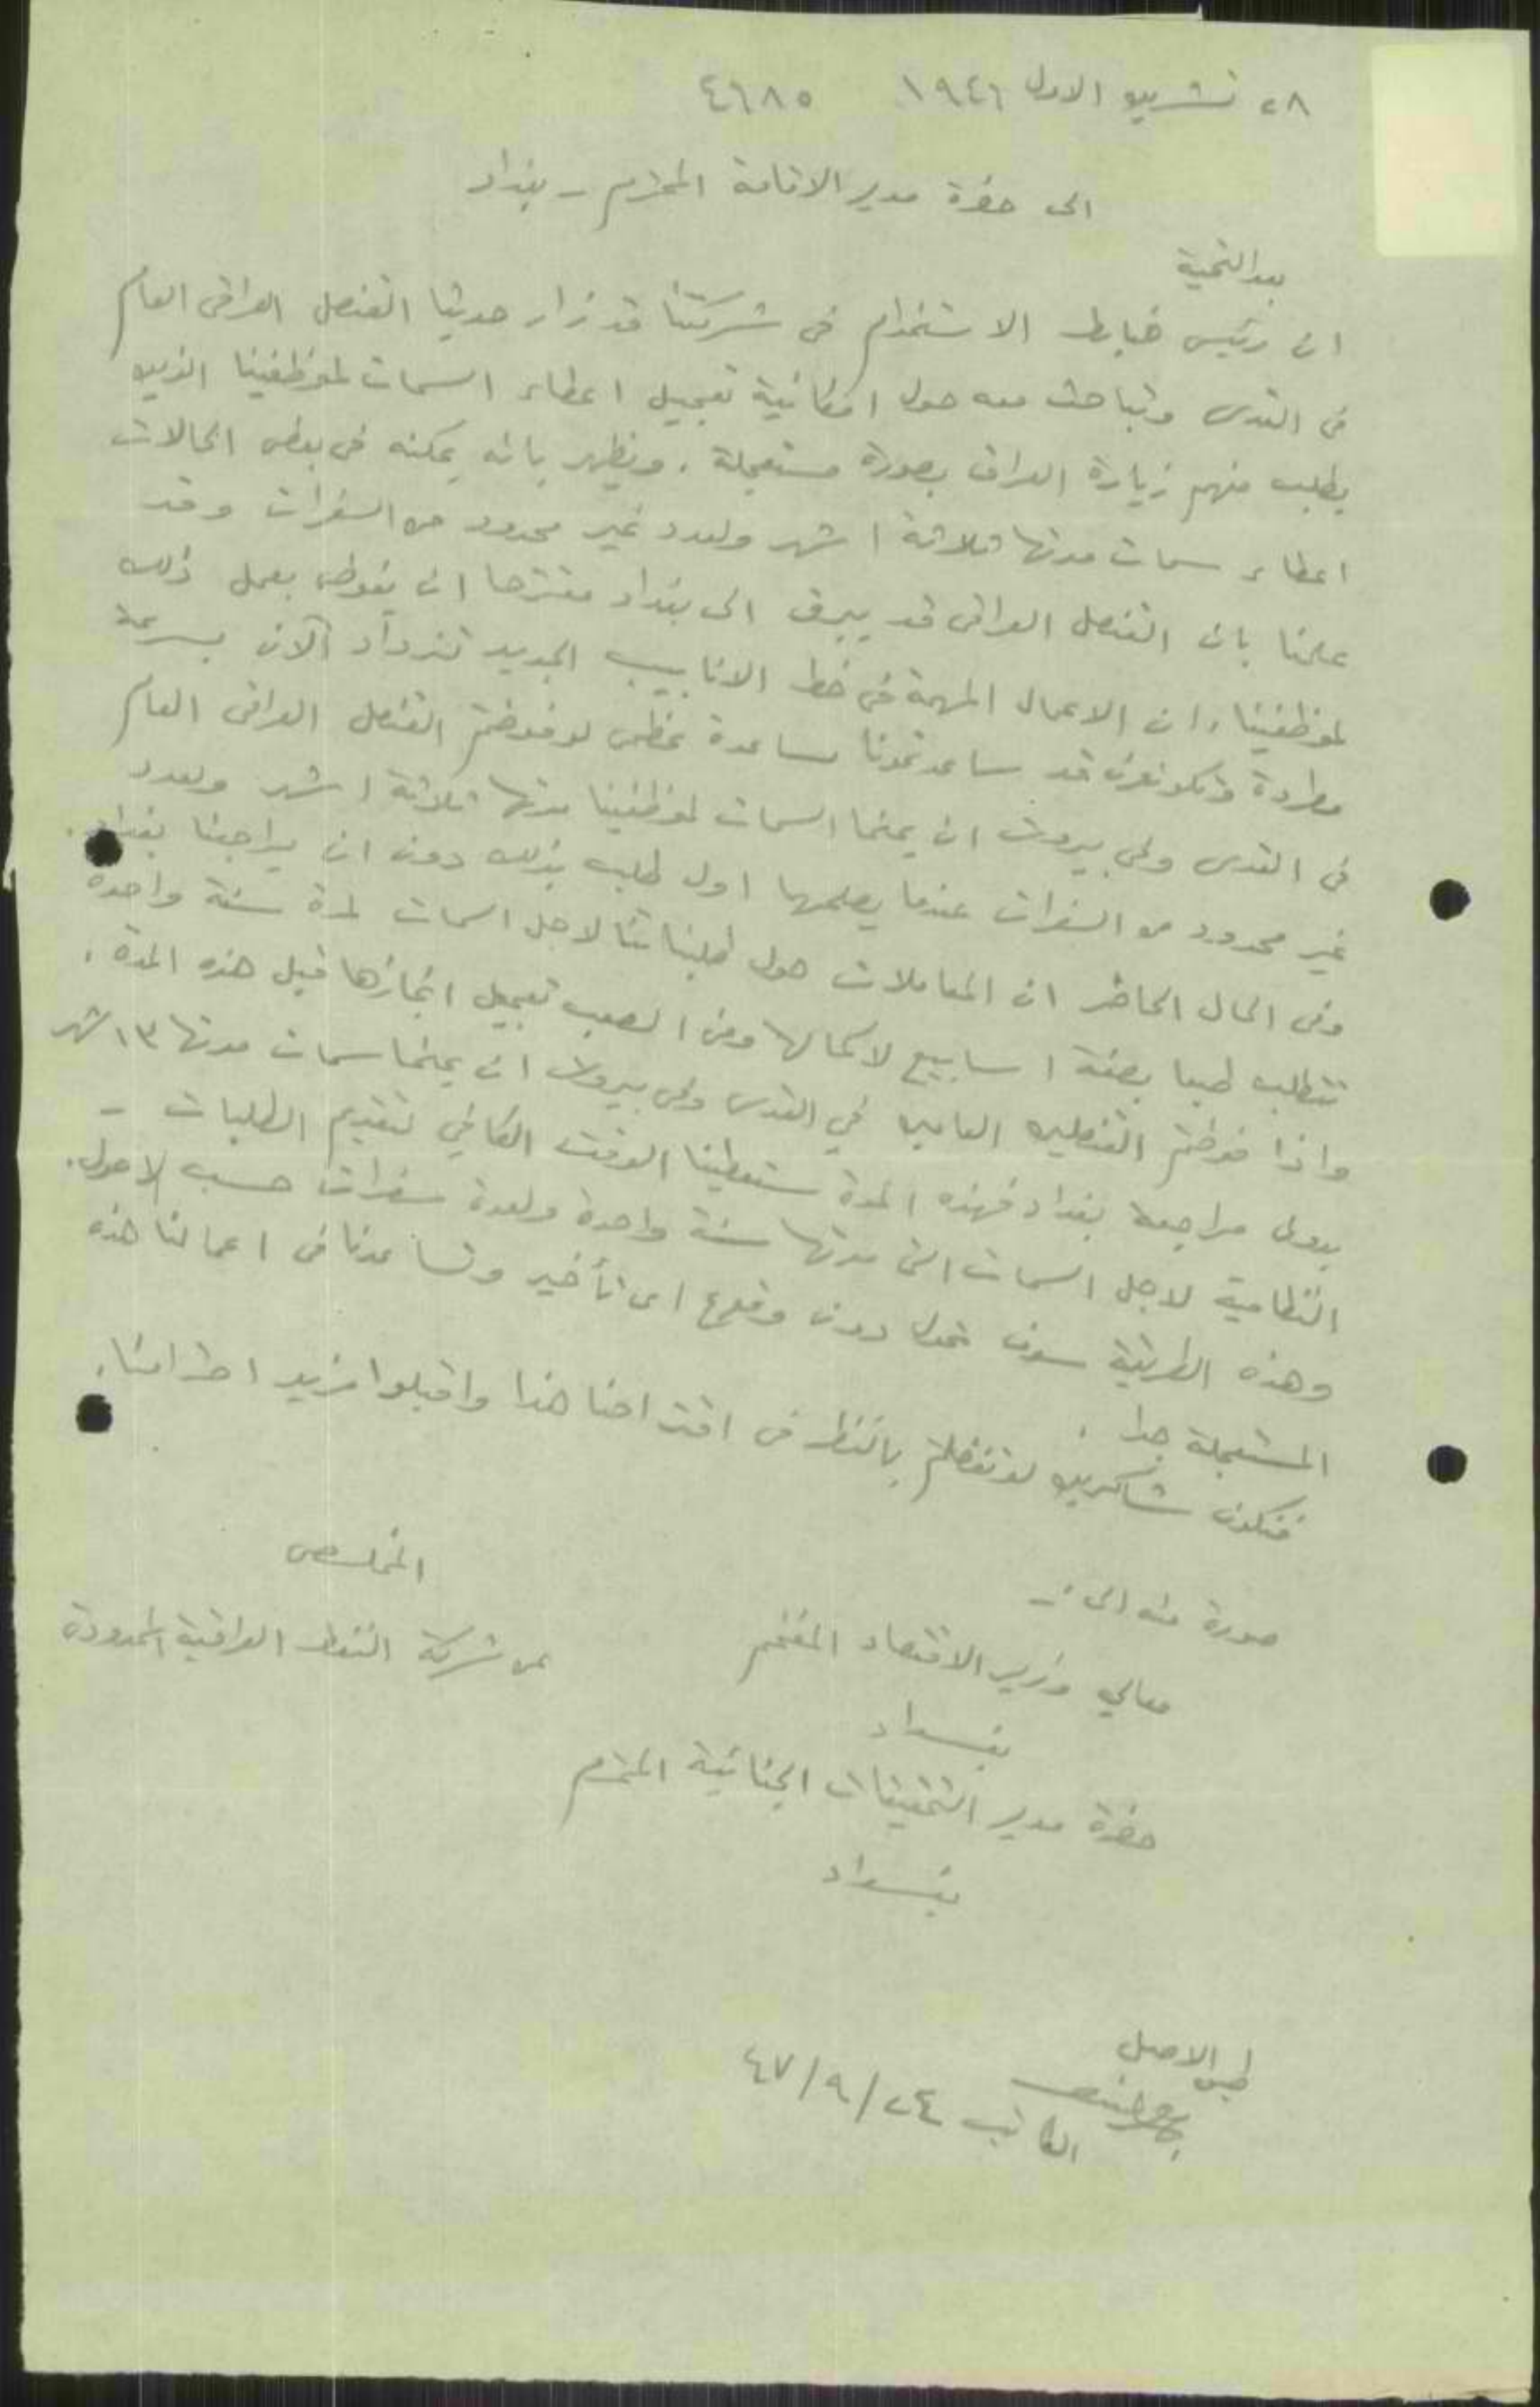 ٢٨ تشرين الاول ١٩٤٦ ٤٦٨٥
الى حضرة مدير الاقامة المحترم - بغداد
بعد التحية
ان رئيس ضباط الاستخدام فى شركتنا قد زار حديثا القنصل العراقى العام
فى القدس وتباحث معه حول امكانية تعجيل اعطاء السمات لموظفينا الذين
يطلب منهم زيارة العراق بصورة مستعجلة . ويظهر بانه يمكنه فى بعض الحالات
اعطاء سمات مدتها ثلاثة اشهر ولعدد غير محدود من السفرات وقد
علمنا بان القنصل العراقى قد يبرق الى بغداد مقترحا ان يفوض بعمل ذلك
لموظفينا . ان الاعمال المهمة فى خط الانابيب الجديد تزداد الآن بسرعة
مطردة وتكونون قد ساعدتمونا مساعدة عظمى لو فوضتم القنصل العراقى العام
فى القدس وفى بيروت ان يمنحا السمات لموظفينا مدتها ثلاثة اشهر ولعدد
غير محدود من السفرات عندما يصلهما اول طلب بذلك دون ان يراجعنا بغداد .
وفى الحال الحاضر ان المعاملات حول طلباتنا لاجل السمات لمدة سنة واحدة
تتطلب طبعا بضعة اسابيع لاكمالها ومن الصعب تعجيل انجازها قبل هذه المدة .
واذا فوضتم القنصلين العامين في القدس وفى بيروت ان يمنحا سمات مدتها ٣ اشهر
بدون مراجعة بغداد فهذه المدة ستعطينا الوقت الكافي لتقديم الطلبات -
النظامية لاجل السمات التى مدتها سنة واحدة ولعدة سفرات حسب الاصول .
وهذه الطريقة سوف تحول دون وقوع اى تأخير وتساعدنا فى اعمالنا هذه
المستعجلة جدا .
فنكون شاكرين لو تفضلتم بالنظر فى اقتراحنا هذا واقبلوا مزيد احترامنا .
المخلص
صورة منه الى : -
عن شركة النفط العراقية المحدودة
معالي وزير الاقتصاد المفخم
بغداد
حضرة مدير التحقيقات الجنائية المحترم
بغداد
طبق الاصل
الكاتب ٢٤/٩/٤٧